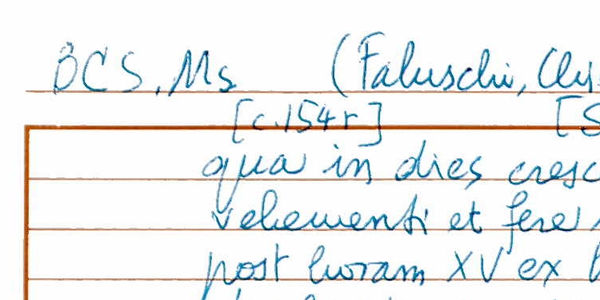 BCS, Ms (Faluschi,
[c.154r] [S
qua in dies cresc
vehementi et fere
post horam XV ex